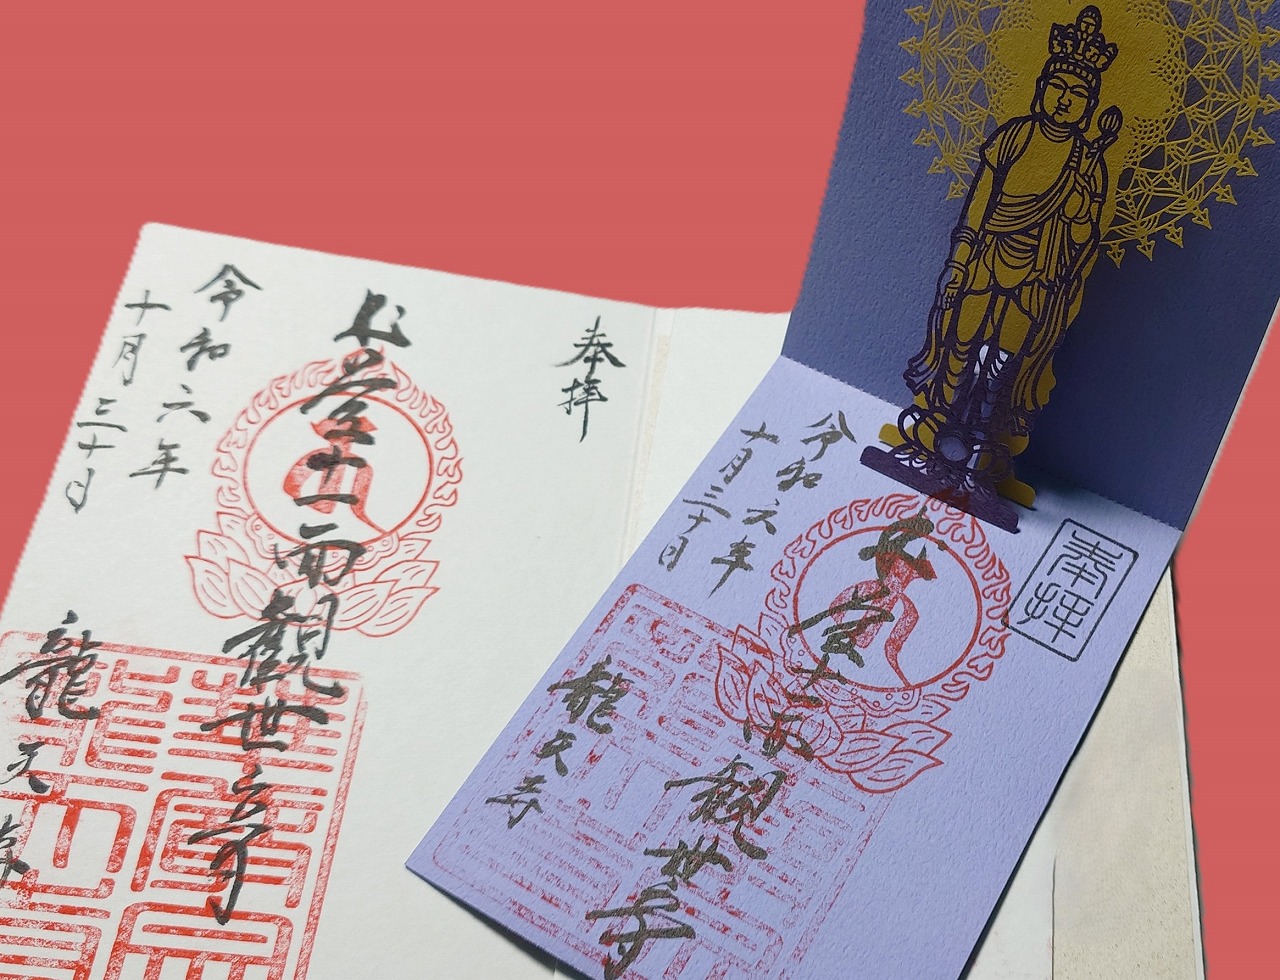 奉拝
本堂十一面觀世音
令和六年
十月三十日
龍天寺
奉拝
本堂十一面觀世音
令和六年
十月三十日
龍天寺